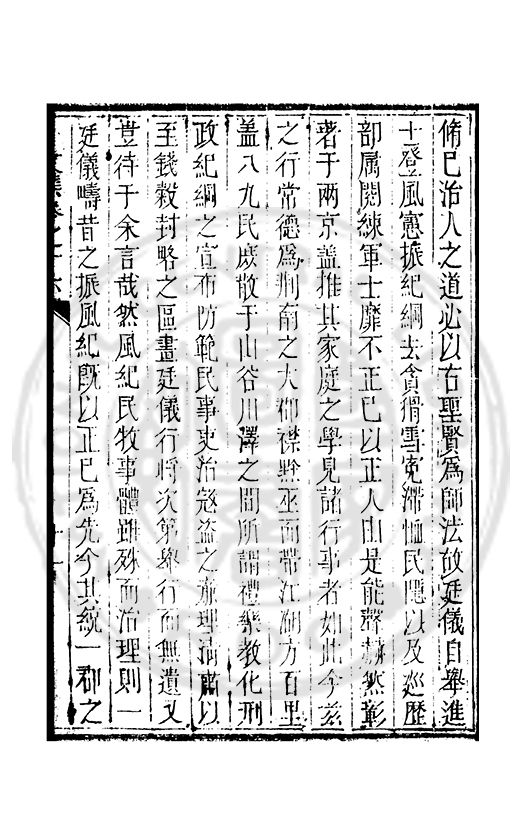 脩己治人之道必以古聖賢為師法故廷儀自舉進
士登風憲振紀綱去貪猾雪寃滯恤民隱以及廵歷
部属閱練軍士靡不正己以正人由是能聲赫然彰
著于兩京盖推其家庭之學見諸行事者如此今兹
之行常德為荆南之大郡襟黔巫而帶江湖方百里
盖八九民庶散于山谷川澤之間所謂禮樂教化刑
政紀綱之宣布防範民事吏治寇盗之辦理清肅以
至錢穀封略之區畫廷儀行將次第舉行而無遺又
豈待于余言哉然風紀民牧事體雖殊而治理則一
廷儀疇昔之振風紀旣以正己為先今其統一郡之